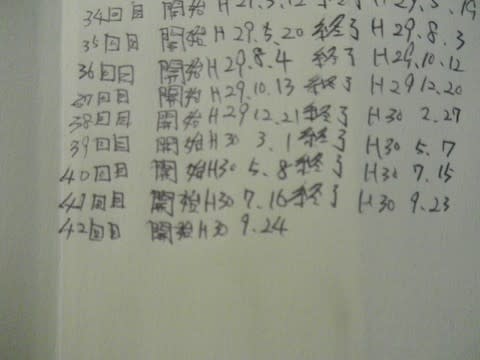 34回目 開始 H29.3.12 終了 H29.5.19
35回目 開始 H29.5.20 終了 H29.8.3
36回目 開始 H29.8.4 終了 H29.10.12
37回目 開始 H29.10.13 終了 H29 12.20
38回目 開始 H29 12.21 終了 H30 2.27
39回目 開始 H30 3.1 終了 H30 5.7
40回目 開始 H30 5.8 終了 H30 7.15
41回目 開始 H30 7.16 終了 H30 9.23
42回目 開始 H30 9.24